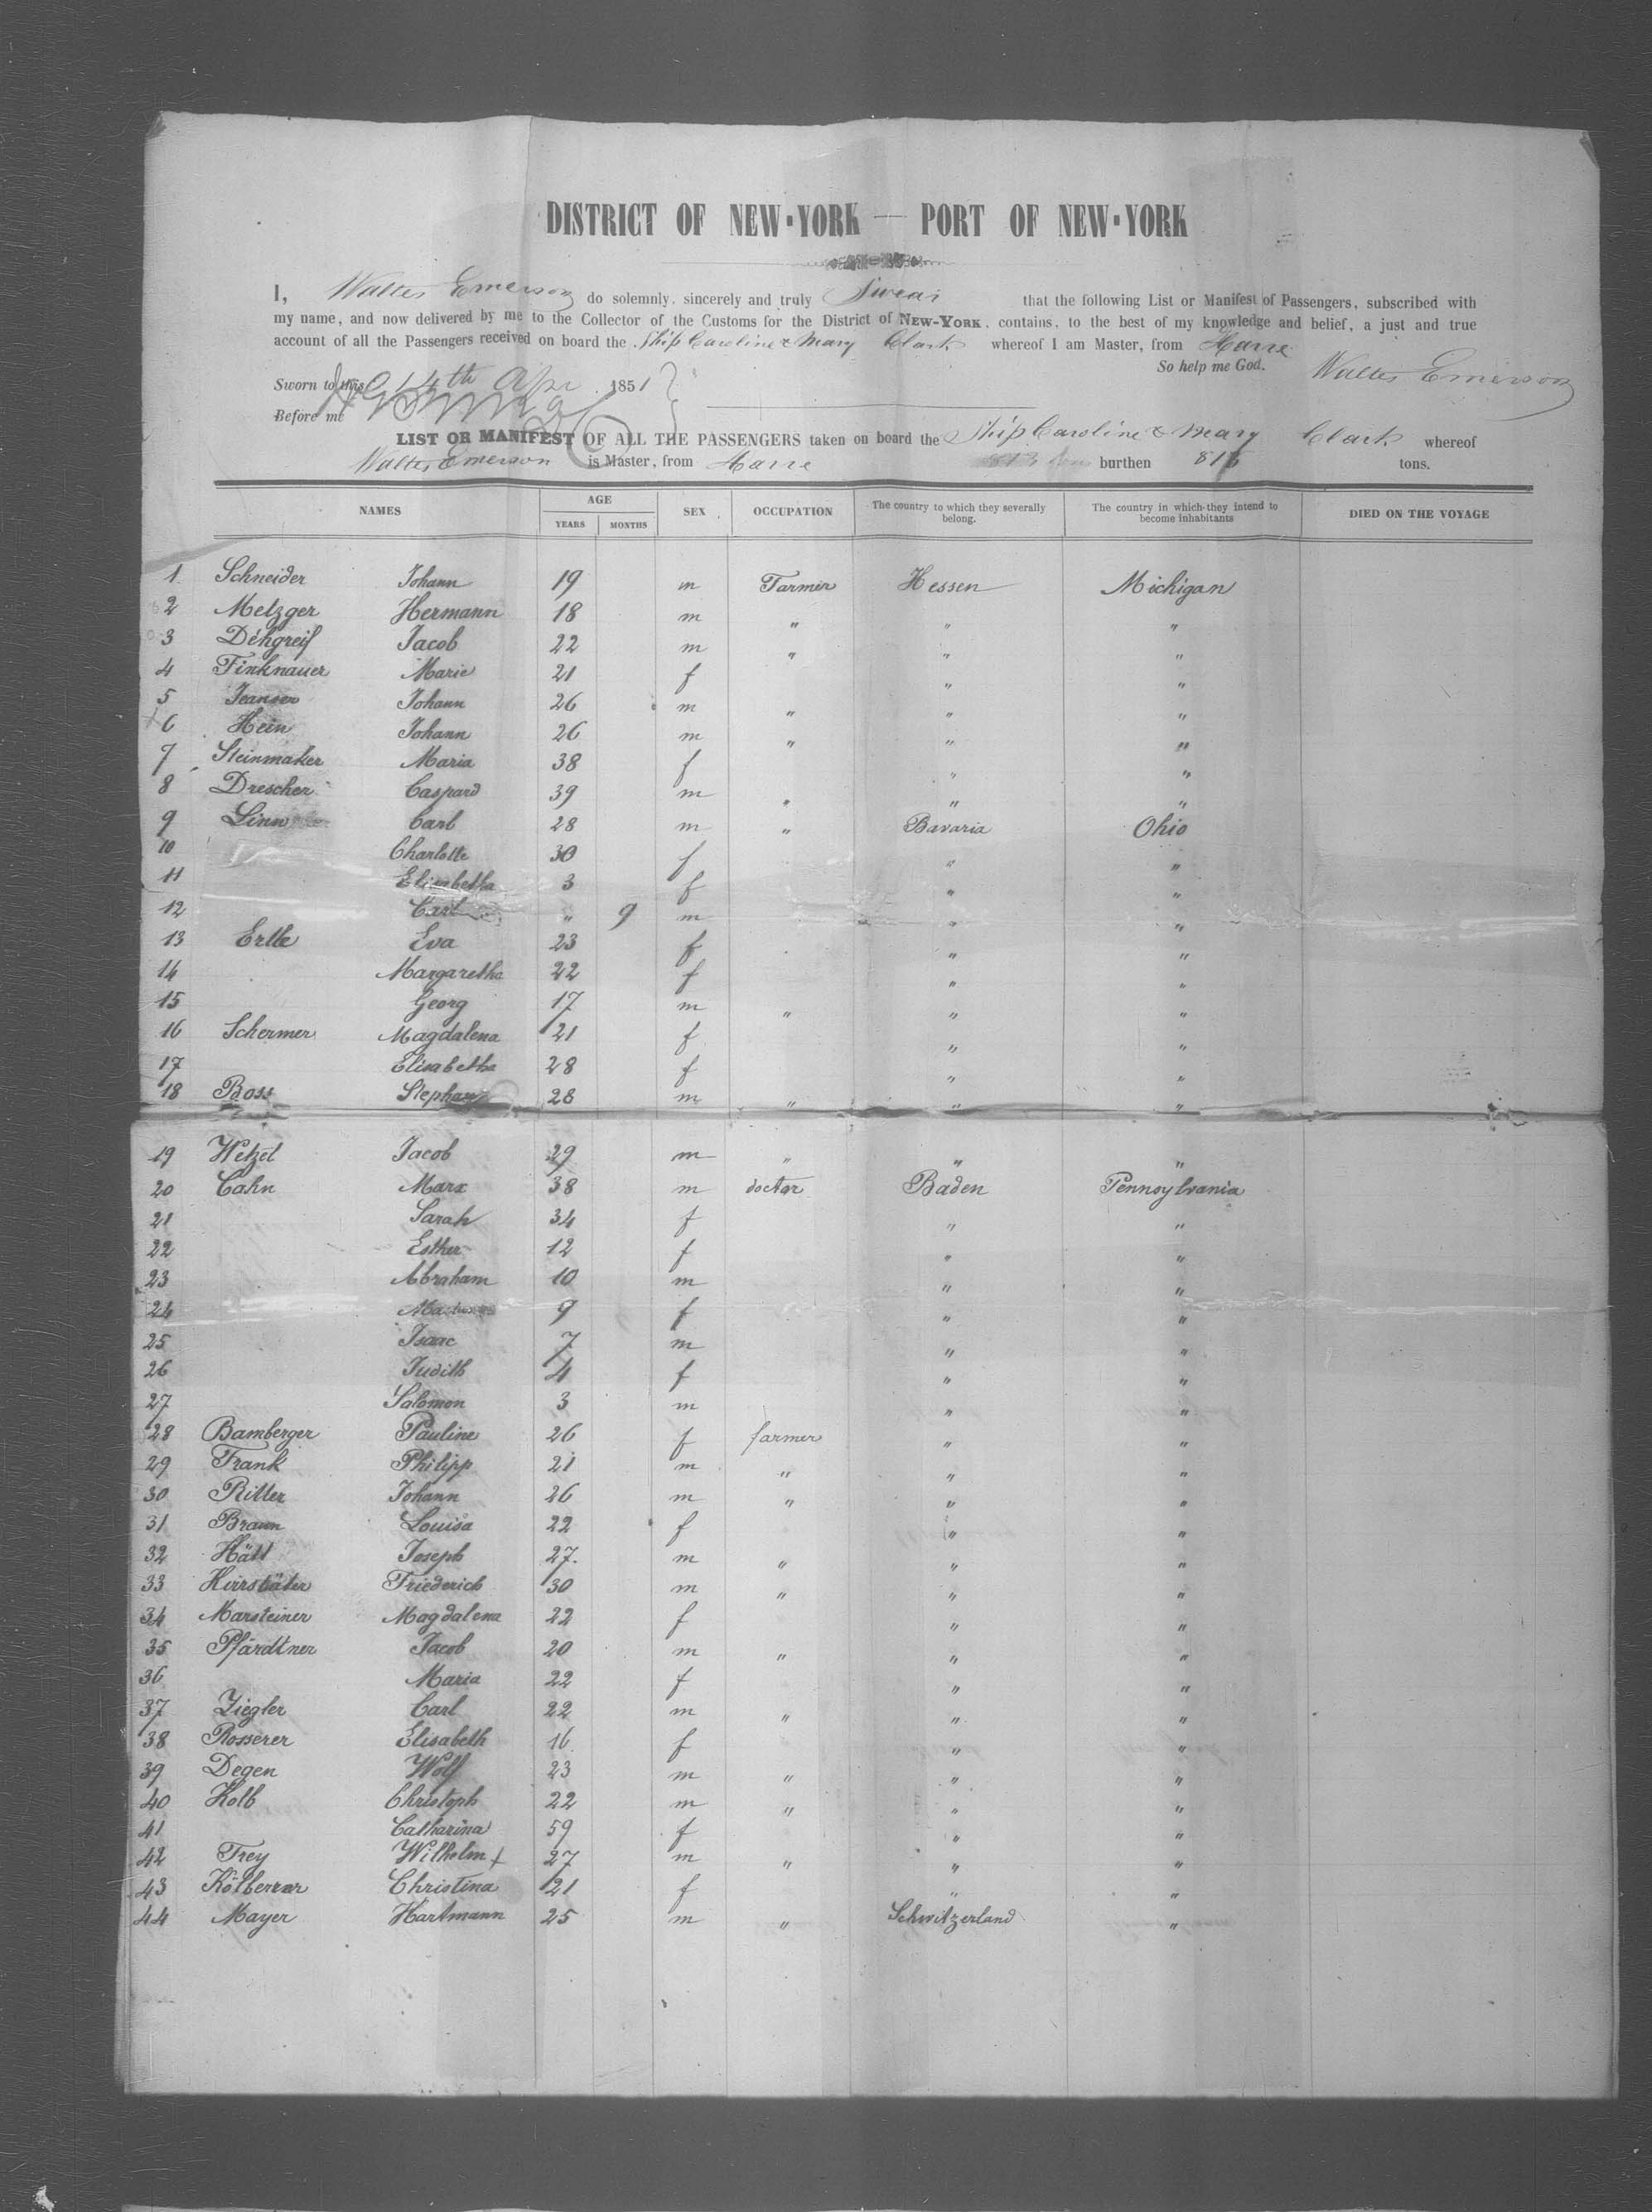 DISTRICT OF NEW-YORK — PORT OF NEW-YORK
I, Walter Emerson do solemnly, sincerely and truly Swear that the following List or Manifest of Passengers, subscribed with
my name, and now delivered by me to the Collector of the Customs for the District of NEW-YORK, contains, to the best of my knowledge and belief, a just and true
account of all the Passengers received on board the Ship Caroline & Mary Clark whereof I am Master, from Havre
So help me God. Walter Emerson
Sworn to this 14th Apr 1851
Before me
LIST OR MANIFEST OF ALL THE PASSENGERS taken on board the Ship Caroline & Mary Clark whereof
Walter Emerson is Master, from Havre burthen tons.
NAMES AGE SEX OCCUPATION The country to which they severally belong. The country in which they intend to become inhabitants DIED ON THE VOYAGE
YEARS MONTHS
1 Schneider Johann 19 m Farmer Hessen Michigan
2 Metzger Hermann 18 m " " "
3 Dehgreif Jacob 22 m " " "
4 Finknauer Marie 21 f " "
5 Johann 26 m " " "
6 Hein Johann 26 m " " "
7 Steinmaker Maria 38 f " "
8 Drescher Caspard 39 m " " "
9 Linn Carl 28 m " Bavaria Ohio
10 Charlotte 30 f " "
11 Elisabetha 3 f " "
12 Carl " 9 m " "
13 Ertle Eva 23 f " "
14 Margaretha 22 f " "
15 Georg 17 m " " "
16 Schermer Magdalena 21 f " "
17 Elisabetha 28 f " "
18 Boss Stephan 28 m " " "
19 Wetzel Jacob 29 m " " "
20 Cahn Marx 38 m doctor Baden Pennsylvania
21 Sarah 34 f " "
22 Esther 12 f " "
23 Abraham 10 m " "
24 9 f " "
25 Isaac 7 m " "
26 Judith 4 f " "
27 Salomon 3 m " "
28 Bamberger Pauline 26 f farmer " "
29 Frank Philipp 21 m " " "
30 Ritter Johann 26 m " " "
31 Braun Louisa 22 f " "
32 Hätt Joseph 27 m " " "
33 Friederich 30 m " " "
34 Marsteiner Magdalena 22 f " "
35 Pfardtner Jacob 20 m " " "
36 Maria 22 f " "
37 Ziegler Carl 22 m " " "
38 Rosserer Elisabeth 16 f " "
39 Degen Wolf 23 m " " "
40 Kolb Christoph 22 m " " "
41 Catharina 59 f " "
42 Frey Wilhelm + 27 m " " "
43 Christina 21 f " "
44 Mayer Hartmann 25 m " Schwitzerland "